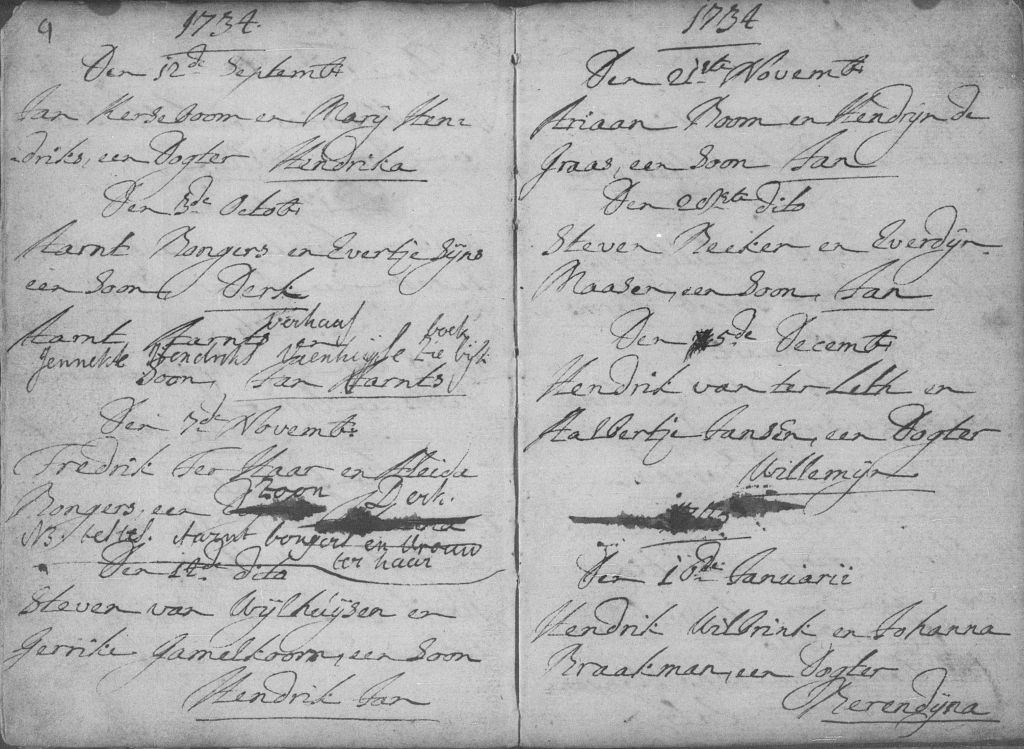 9
1734.
Den 12de Septembr
Jan Kerseboom en Marij Hen=
driks, een Dogter Hendrika
Den 3de Octobr
Aarnt Bongers en Evertje Sijns
een Soon, Derk
Aarnt Aarnts verhaaf boek
Jenneke Hendriks
Soon, Jan Aarnts
Den 7de Novembr
Fredrik Ter Haar en Aleida
Bongers, een Zoon Derk.
NB. test. Aarnt bongers en vrouw
ter haar
Den 14de dito
Steven van Wijlhuijsen en
Gerrikje Jamelkoorn, een Soon
Hendrik Jan
1734
Den 21ste Novembr
Ariaan Boom en Hendrijn de
Graas, een Soon Jan
Den 28ste dito
Steven Becker en Everdijn
Maasen, een Soon, Jan
Den 5de Decembr
Hendrik van ter Leth en
Aalbertje Jansen, een Dogter
Willemijn
Den 16de Januarii
Hendrik Wilbrink en Johanna
Braakman, een Dogter
Berendijna